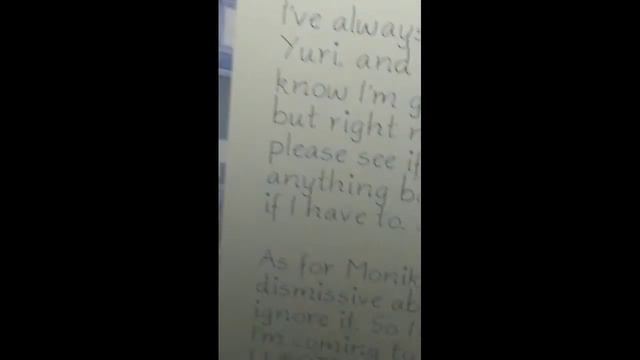 I've always
Yuri. and
know I'm g
but right
please see if
anything b
if I have to.
As for Monik
dismissive ab
ignore it. So I
I'm coming